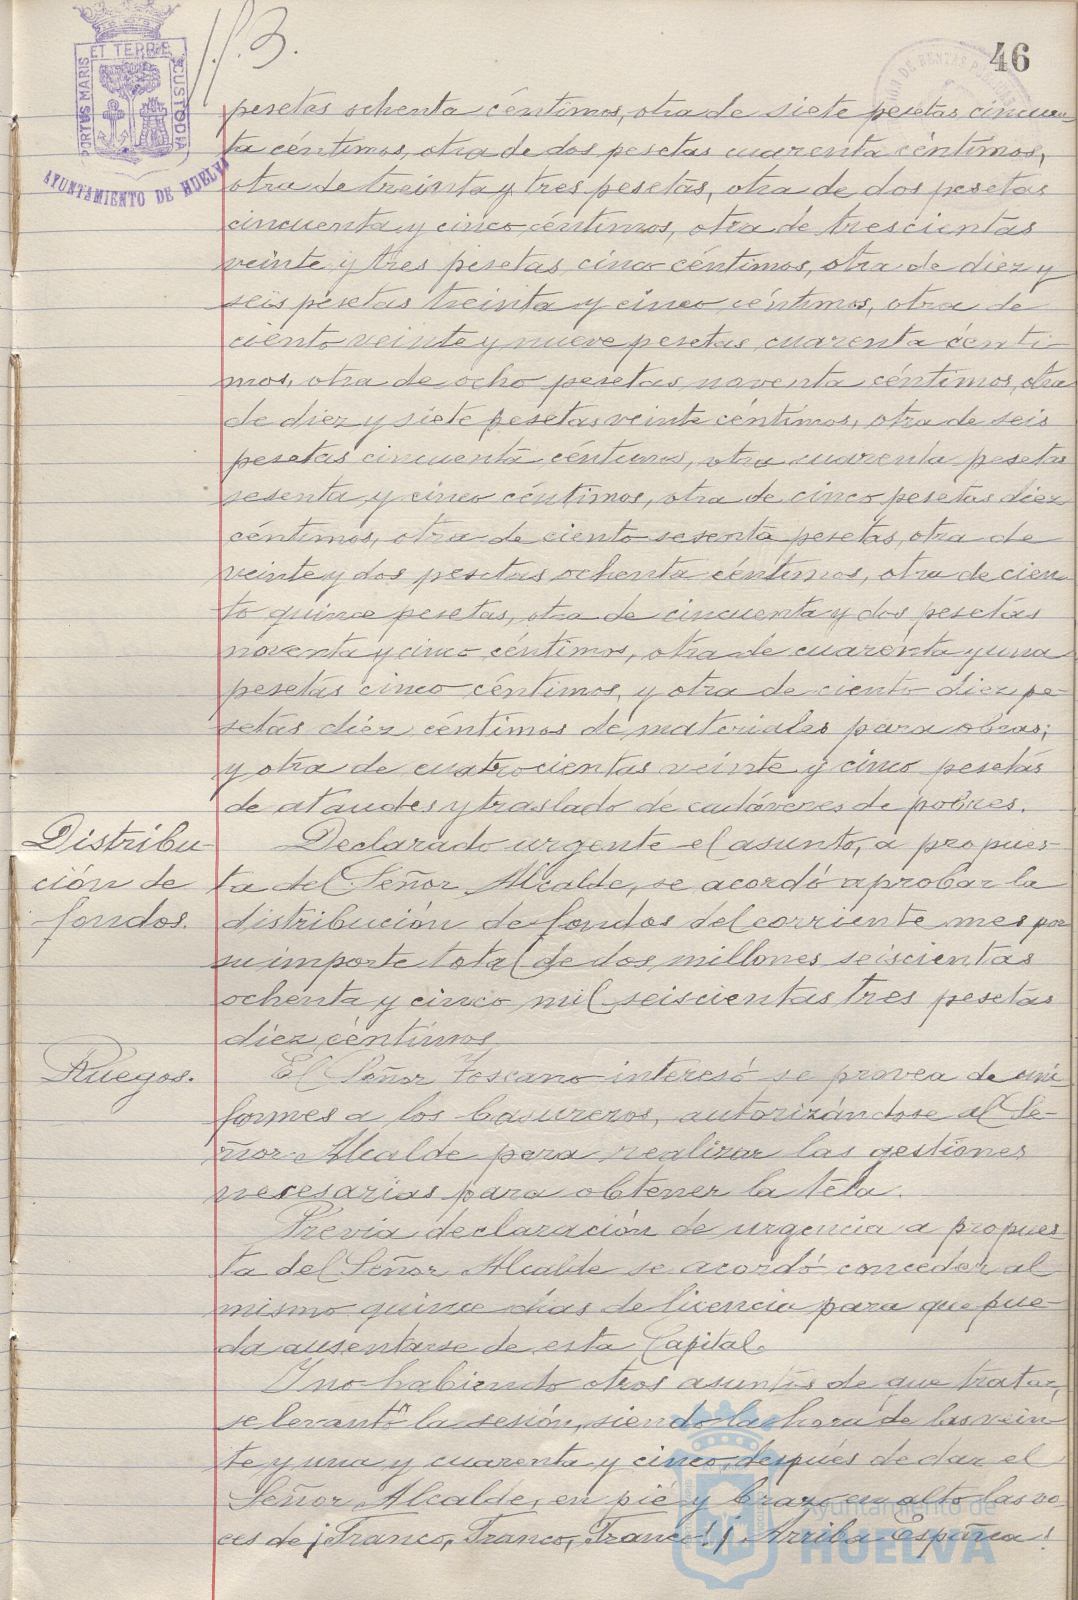 P. 3.
46
PORTUS MARIS ET TERRE CUSTODIA
AYUNTAMIENTO DE HUELVA
DE RENTAS
pesetas ochenta céntimos, otra de siete pesetas cincuen-
ta céntimos, otra de dos pesetas cuarenta céntimos,
otra de treinta y tres pesetas, otra de dos pesetas
cincuenta y cinco céntimos, otra de trescientas
veinte y tres pesetas cinco céntimos, otra de diez y
seis pesetas treinta y cinco céntimos, otra de
ciento veinte y nueve pesetas cuarenta cénti-
mos, otra de ocho pesetas noventa céntimos, otra
de diez y siete pesetas veinte céntimos, otra de seis
pesetas cincuenta céntimos, otra cuarenta pesetas
sesenta y cinco céntimos, otra de cinco pesetas diez
céntimos, otra de ciento sesenta pesetas, otra de
veinte y dos pesetas ochenta céntimos, otra de cien-
to quince pesetas, otra de cincuenta y dos pesetas
noventa y cinco céntimos, otra de cuarenta y una
pesetas cinco céntimos, y otra de ciento diez pe-
setas diez céntimos de materiales para obras;
y otra de cuatrocientas veinte y cinco pesetas
de ataudes y traslado de cadáveres de pobres.
Distribu-
ción de
fondos.
Declarado urgente el asunto, a propues-
ta del Señor Alcalde, se acordó aprobar la
distribución de fondos del corriente mes por
su importe total de dos millones seiscientas
ochenta y cinco mil seiscientas tres pesetas
diez céntimos.
Ruegos.
El Señor Toscano interesó se provea de uni-
formes a los basureros, autorizándose al Se-
ñor Alcalde para realizar las gestiones
necesarias para obtener la tela.
Previa declaración de urgencia a propues-
ta del Señor Alcalde se acordó conceder al
mismo quince dias de licencia para que pue-
da ausentarse de esta Capital.
Y no habiendo otros asuntos de que tratar,
se levantó la sesión, siendo la hora de las vein-
te y una y cuarenta y cinco, después de dar el
Señor Alcalde, en pie y brazo en alto las vo-
ces de ¡Franco, Franco, Franco! ¡Arriba España!
Ayuntamiento de
HUELVA